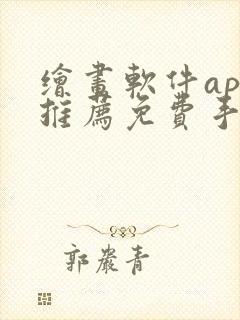 繪畫軟件ap
推薦免費手
郭嚴青